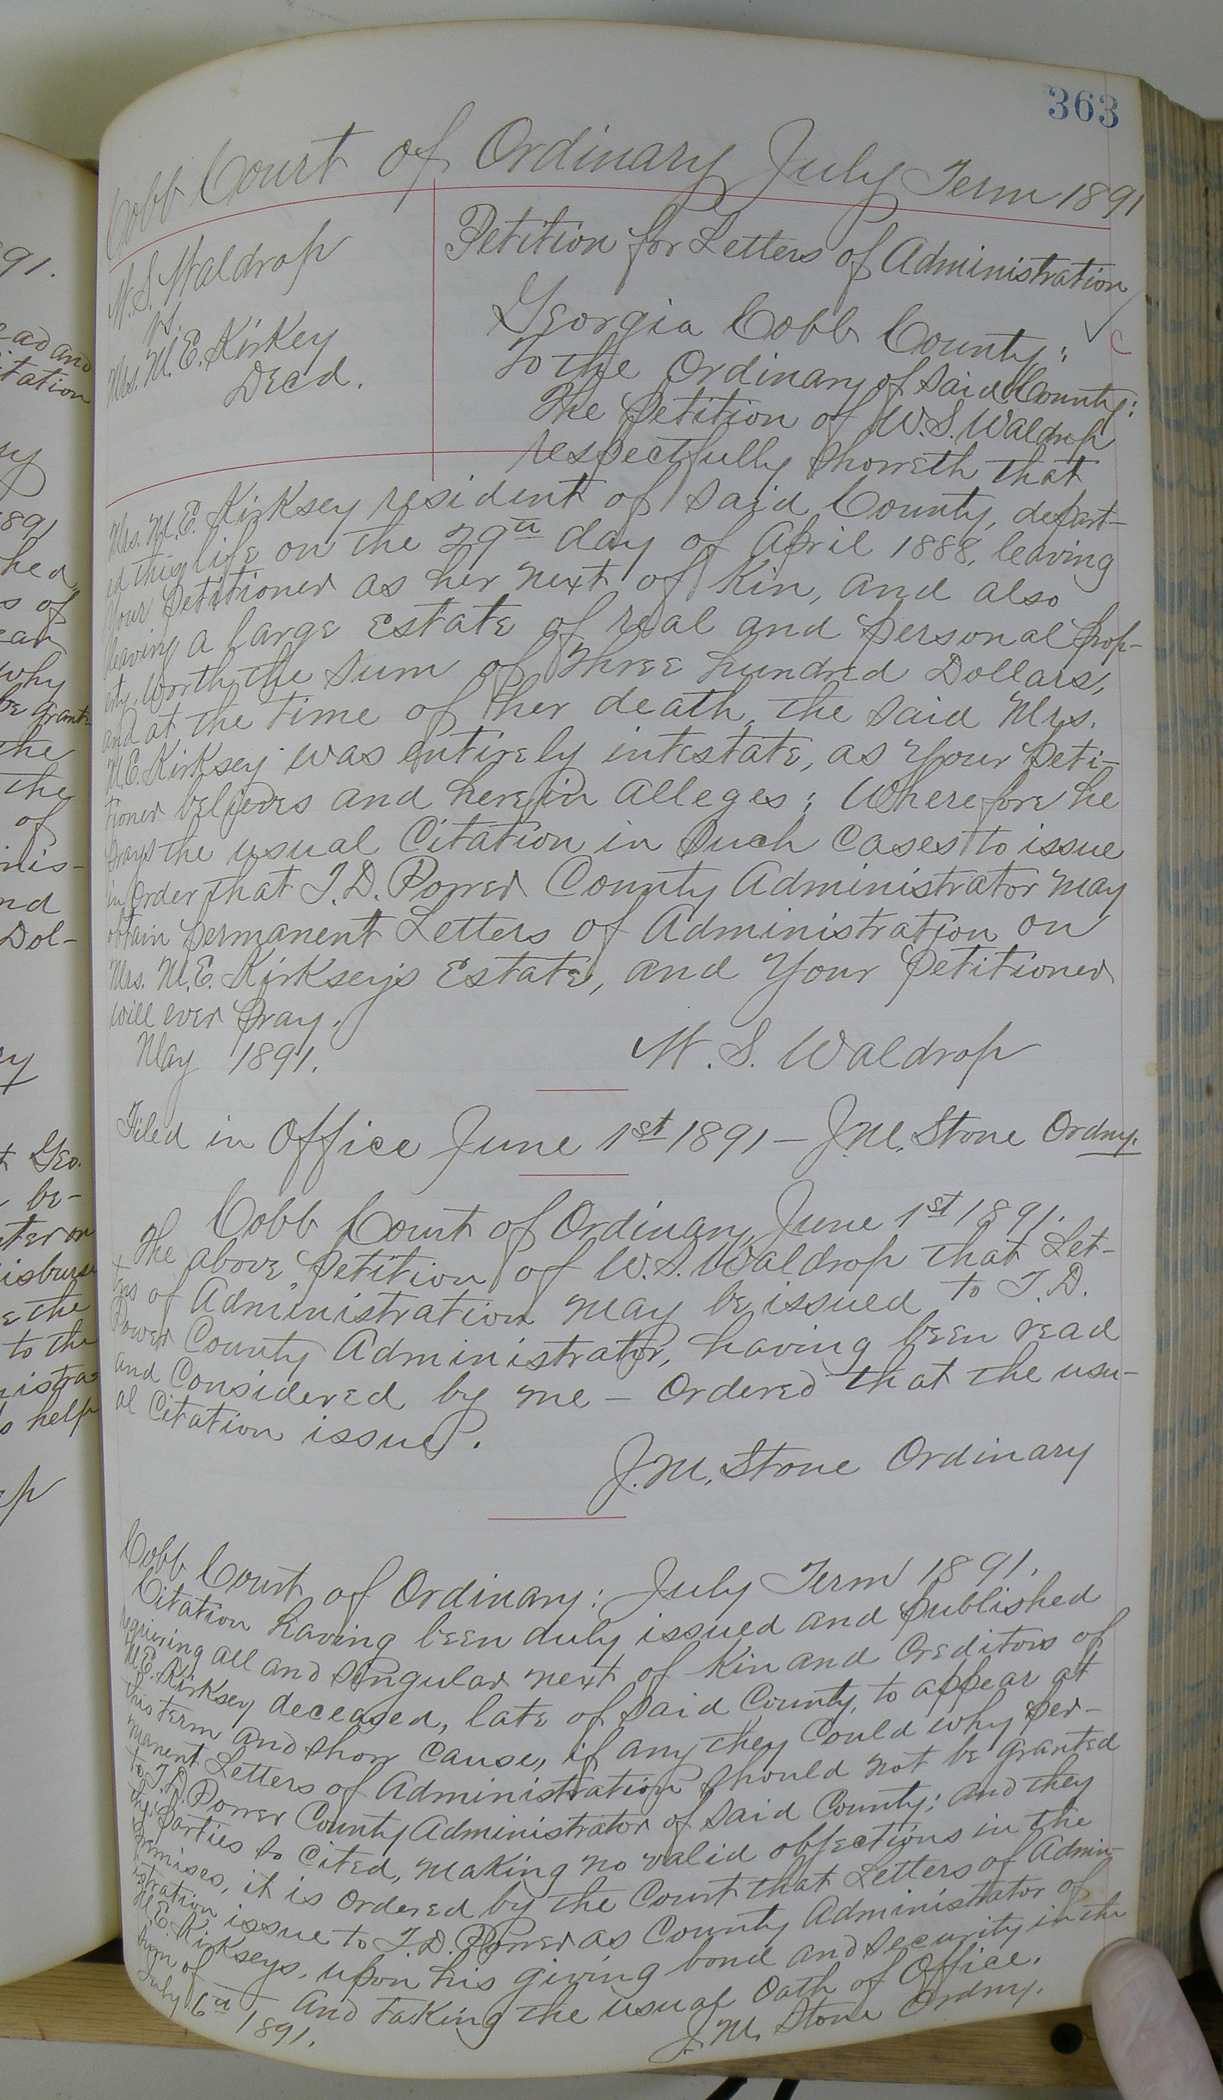 363
Cobb Court of Ordinary July Term 1891
W. S. Waldrop
vs.
Mrs. M. E. Kirkey
Decd.
Petition for Letters of Administration
Georgia Cobb County:
To the Ordinary of Said County:
The Petition of W. S. Waldrop
respectfully Showeth that
Mrs. M. E. Kirksey resident of Said County, depart-
ed this life on the 29th day of April 1888, leaving
your Petitioner as her next of Kin, and also
leaving a large Estate of real and personal prop-
erty, worth the Sum of Three hundred Dollars,
and at the time of her death, the Said Mrs.
M. E. Kirksey was entirely intestate, as Your Peti-
tioner believes and herein alleges; Wherefore he
prays the usual Citation in Such Cases to issue
in Order that T. D. Power County Administrator may
obtain permanent Letters of Administration on
Mrs. M. E. Kirksey's Estate, and Your Petitioner
will ever Pray.
May 1891.
W. S. Waldrop
Filed in Office June 1st 1891 — J. M. Stone Ordny.
Cobb Court of Ordinary, June 1st 1891.
The above Petition of W. S. Waldrop that Let-
ters of Administration may be issued to T. D.
Power County Administrator, having been read
and Considered by me — Ordered that the usu-
al Citation issue.
J. M. Stone Ordinary
Cobb Court of Ordinary: July Term 1891.
Citation having been duly issued and published
requiring all and Singular next of Kin and Creditors of
M. E. Kirksey deceased, late of Said County, to appear at
this term and Show Cause, if any they Could why per-
manent Letters of Administration Should not be granted
to T. D. Power County Administrator of Said County; and they
the Parties So Cited, making no valid objections in the
premises, it is ordered by the Court that Letters of Admin-
istration issue to T. D. Power as County Administrator of
M. E. Kirkseys, upon his giving bond and Security in the
Sum of — and taking the usual Oath of Office.
July 6th 1891.
J. M. Stone Ordny.
91.
ead and
itation
891
hed
s of
why
be grant
the
the
of
minis-
nd
Dol-
Geo.
be-
isburse
e the
to the
nistra
So help